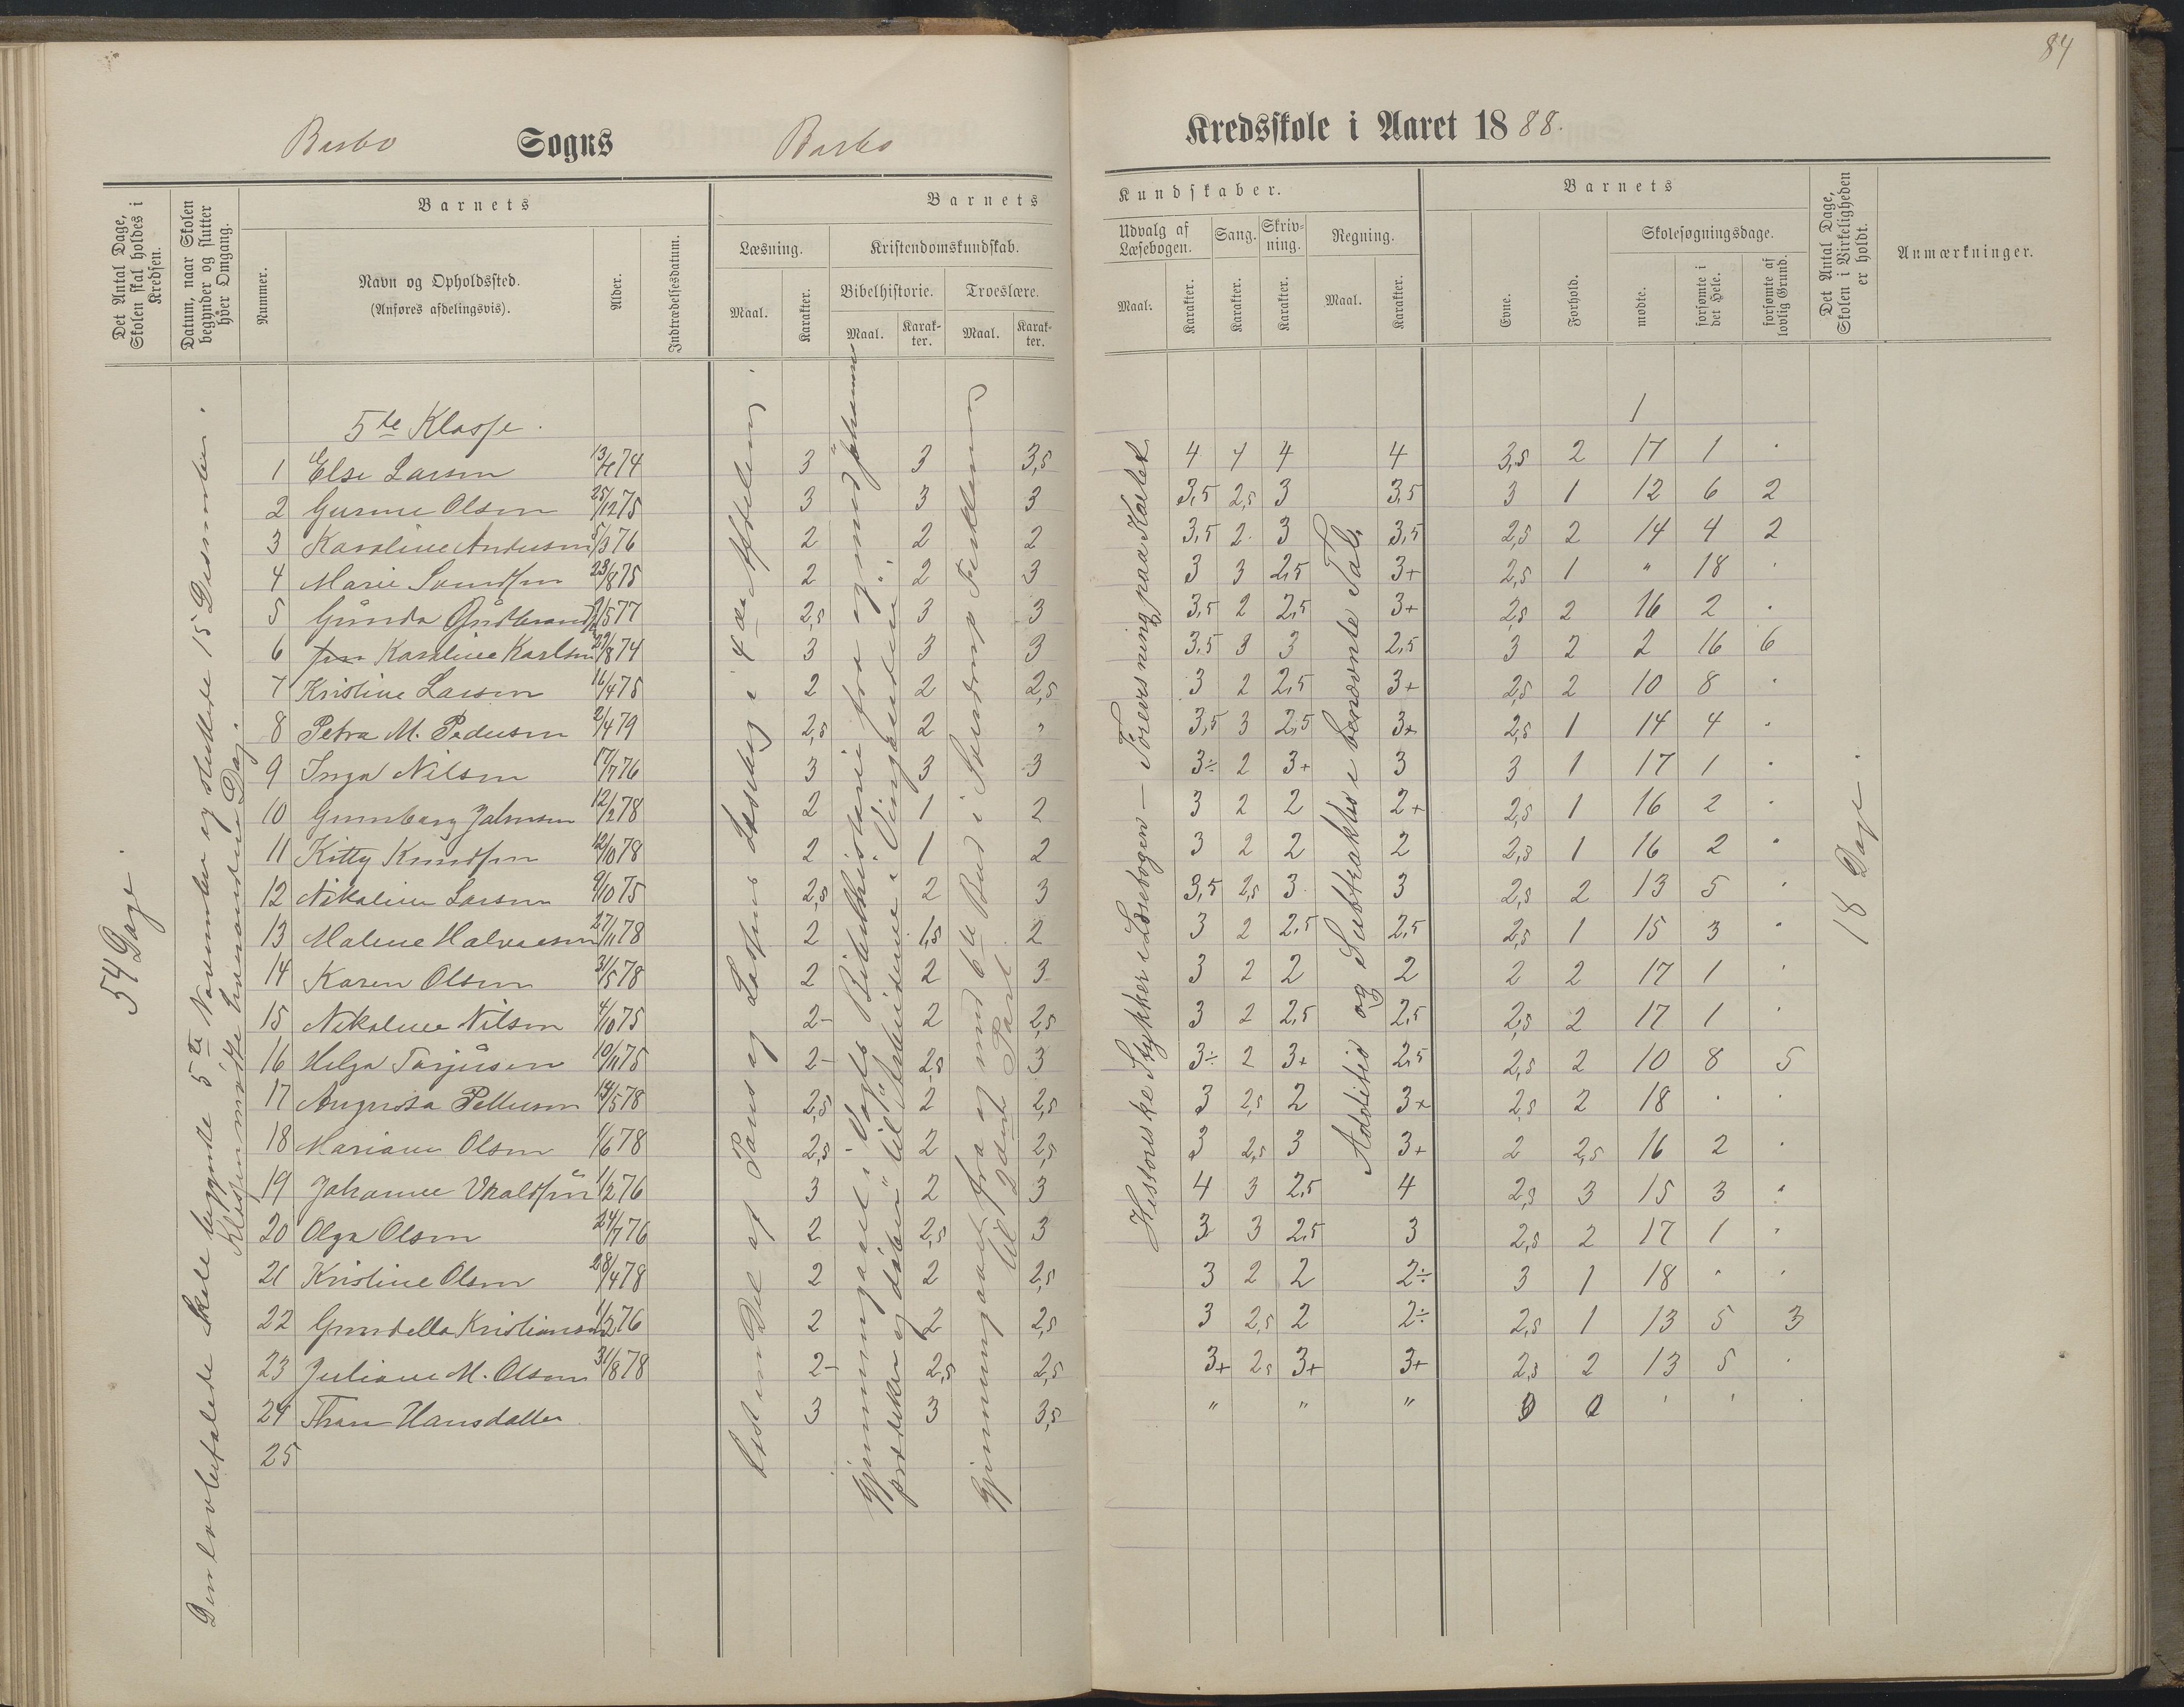 84
Barbo Sogns Barbo Kredsskole i Aaret 1888.
Det Antal Dage, Skolen skal holdes i Kredsen.
Datum, naar Skolen begynder og slutter hver Omgang.
Barnets
Nummer.
Navn og Opholdssted.
(Anføres afdelingsvis).
Alder.
Indtrædelsesdatum.
Barnets
Læsning.
Maal.
Karakter.
Kristendomskundskab.
Bibelhistorie.
Maal.
Karakter.
Troeslære.
Maal.
Karakter.
Kundskaber.
Udvalg af Læsebogen.
Maal.
Karakter.
Sang.
Karakter.
Skrivning.
Karakter.
Regning.
Maal.
Karakter.
Barnets
Evne.
Forhold.
Skolesøgningsdage.
mødte.
forsømte i det Hele.
forsømte af lovlig Grund.
Det Antal Dage, Skolen i Virkeligheden er holdt.
Anmærkninger.
54 Dage.
Den lovbefalede Skole begyndte 5te November og sluttede 15 Desember.
Klassen mødte hverandre Dag.
Læst en Del af Pauss og Lassens Læsebog i 4de Afdeling.
Gjennemgaaet i Vogts Bibelhistorie fra og med Johannes
prædiker og døber til Arbeiderne i Vingaarden.
Gjennemgaaet fra og med 6te Bud i Sverdrups Forklaring
til 2den Part
Historiske Stykker i Læsebogen — Forevisning paa Kartet.
Addition og Subtraktion i benævnte Tal.
18 Dage.
5te Klasse. 1
1 Else Larsen 13/7 74 3 3 3,5 4 4 4 4 3,5 2 17 1 .
2 Gurine Olsen 25/12 75 3 3 3 3,5 2,5 3 3,5 3 1 12 6 2
3 Karoline Andersen 5/3 76 2 2 2 3,5 2 3 3,5 2,5 2 14 4 2
4 Marie Svendsen 23/8 75 2 2 3 3 3 2,5 3+ 2,5 1 " 18 .
5 Gunda Gudbrands 2/5 77 2,5 3 3 3,5 2 2,5 3+ 2,5 2 16 2 .
6 Karoline Karlsen 29/8 74 3 3 3 3,5 3 3 2,5 3 2 2 16 6
7 Kristine Larsen 16/4 75 2 2 2,5 3 2 2,5 3+ 2,5 2 10 8 .
8 Petra M. Pedersen 2/4 79 2,5 2 " 3,5 3 2,5 3+ 2,5 1 14 4 .
9 Inga Nilsen 17/7 76 3 3 3 3÷ 2 3+ 3 3 1 17 1 .
10 Gunnborg Johnsen 12/2 78 2 1 2 3 2 2 2+ 2,5 1 16 2 .
11 Kitty Knudsen 12/10 78 2 1 2 3 2 2 2 2,5 1 16 2 .
12 Nikoline Larsen 9/10 75 2,5 2 3 3,5 2,5 3 3 2,5 2 13 5 .
13 Malene Halvorsen 27/11 78 2 1,5 2 3 2 2,5 2,5 2,5 1 15 3 .
14 Karen Olsen 31/5 78 2 2 3 3 2 2 2 2 2 17 1 .
15 Nikoline Nilsen 4/10 75 2- 2 2,5 3 2 2,5 2,5 2,5 2 17 1 .
16 Helga Terjusen 10/11 75 2- 2,5 3 3÷ 2 3+ 2,5 2,5 2 10 8 5
17 Augusta Pettersen 14/5 78 2,5 2 2,5 3 2,5 2 3+ 2,5 2 18 . .
18 Mariane Olsen 1/6 78 2,5 2 2,5 3 2,5 3 3+ 2 2,5 16 2 .
19 Johanne 1/2 76 3 2 3 4 3 2,5 4 2,5 3 15 3 .
20 Olga Olsen 24/7 76 2 2,5 3 3 3 2,5 3 2,5 2 17 1 .
21 Kristine Olsen 28/4 78 2 2 2,5 3 2 2 2÷ 3 1 18 . .
22 Gundella Kristiansen 1/3 76 2 2 2,5 3 2,5 2 2÷ 2,5 1 13 5 3
23 Juliane M. Olsen 31/8 78 2- 2,5 2,5 3+ 2,5 3+ 3+ 2,5 2 13 5 .
24 Hansdatter 3 3 3,5 " " " 0 0 ' ' .
25